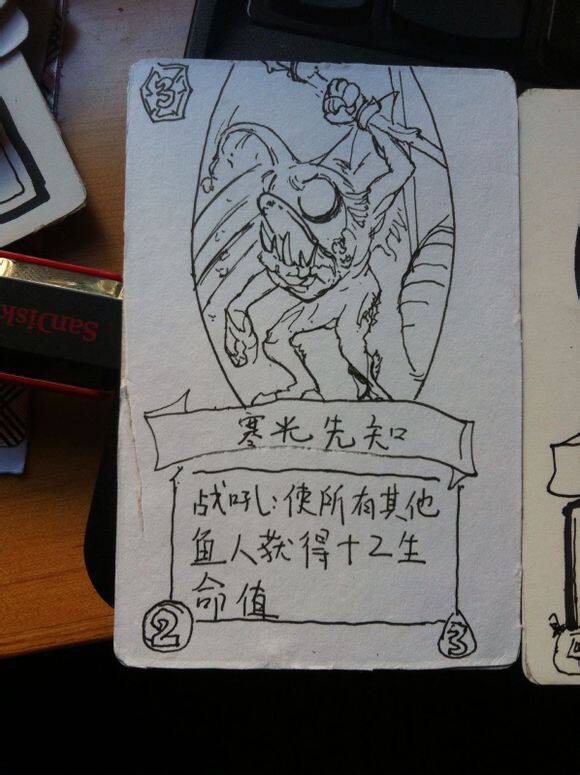 3
SanDisk
寒光先知
战吼:使所有其他
鱼人获得+2生
命值
2
3